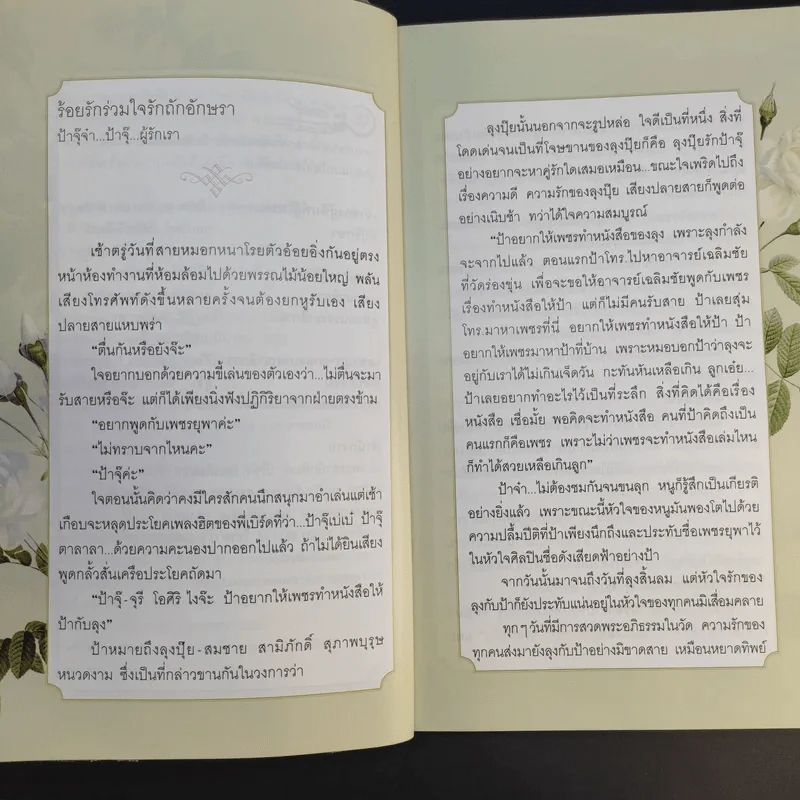 ร้อยรักร่วมใจรักถักอักษรา
ป้าจุ๊จ๋า...ป้าจุ๊...ผู้รักเรา
เช้าตรู่วันที่สายหมอกหนาโรยตัวอ้อยอิ่งกันอยู่ตรง
หน้าห้องทำงานที่ห้อมล้อมไปด้วยพรรณไม้น้อยใหญ่ พลัน
เสียงโทรศัพท์ดังขึ้นหลายครั้งจนต้องยกหูรับเอง เสียง
ปลายสายแหบพร่า
“ตื่นกันหรือยังจ๊ะ”
ใจอยากบอกด้วยความขี้เล่นของตัวเองว่า...ไม่ตื่นจะมา
รับสายหรือจ๊ะ แต่ก็ได้เพียงนิ่งฟังปฏิกิริยาจากฝ่ายตรงข้าม
“อยากพูดกับเพชรยุพาค่ะ”
“ไม่ทราบจากไหนคะ”
“ป้าจุ๊ค่ะ”
ใจตอนนั้นคิดว่าคงมีใครสักคนนึกสนุกมาอำเล่นแต่เช้า
เกือบจะหลุดประโยคเพลงฮิตของพี่เบิร์ดที่ว่า...ป้าจุ๊เบ่เบ๋ ป้าจุ๊
ตาลาลา...ด้วยความคะนองปากออกไปแล้ว ถ้าไม่ได้ยินเสียง
พูดกลั้วสั่นเครือประโยคถัดมา
“ป้าจุ๊-จุรี โอศิริ ไงจ๊ะ ป้าอยากให้เพชรทำหนังสือให้
ป้ากับลุง”
ป้าหมายถึงลุงปุ๊ย-สมชาย สามิภักดิ์ สุภาพบุรุษ
หนวดงาม ซึ่งเป็นที่กล่าวขานกันในวงการว่า
ลุงปุ๊ยนั้นนอกจากจะรูปหล่อ ใจดีเป็นที่หนึ่ง สิ่งที่
โดดเด่นจนเป็นที่โจษขานของลุงปุ๊ยก็คือ ลุงปุ๊ยรักป้าจุ๊
อย่างอยากจะหาคู่รักใดเสมอเหมือน...ขณะใจเพริดไปถึง
เรื่องความดี ความรักของลุงปุ๊ย เสียงปลายสายก็พูดต่อ
อย่างเนิบช้า ทว่าได้ใจความสมบูรณ์
“ป้าอยากให้เพชรทำหนังสือของลุง เพราะลุงกำลัง
จะจากไปแล้ว ตอนแรกป้าโทร.ไปหาอาจารย์เฉลิมชัย
ที่วัดร่องขุ่น เพื่อจะขอให้อาจารย์เฉลิมชัยพูดกับเพชร
เรื่องทำหนังสือให้ป้า แต่ก็ไม่มีคนรับสาย ป้าเลยสุ่ม
โทร.มาหาเพชรที่นี่ อยากให้เพชรทำหนังสือให้ป้า ป้า
อยากให้เพชรมาหาป้าที่บ้าน เพราะหมอบอกป้าว่าลุงจะ
อยู่กับเราได้ไม่เกินเจ็ดวัน กะทันหันเหลือเกิน ลูกเอ๋ย...
ป้าเลยอยากทำอะไรไว้เป็นที่ระลึก สิ่งที่คิดได้คือเรื่อง
หนังสือ เชื่อมั้ย พอคิดจะทำหนังสือ คนที่ป้าคิดถึงเป็น
คนแรกก็คือเพชร เพราะไม่ว่าเพชรจะทำหนังสือเล่มไหน
ก็ทำได้สวยเหลือเกินลูก”
ป้าจ๋า...ไม่ต้องชมกันจนขนลุก หนูก็รู้สึกเป็นเกียรติ
อย่างยิ่งแล้ว เพราะขณะนี้หัวใจของหนูมันพองโตไปด้วย
ความปลื้มปีติที่ป้าเพียงนึกถึงและประทับชื่อเพชรยุพาไว้
ในหัวใจศิลปินชื่อดังเสียดฟ้าอย่างป้า
จากวันนั้นมาจนถึงวันที่ลุงสิ้นลม แต่หัวใจรักของ
ลุงกับป้าก็ยังประทับแน่นอยู่ในหัวใจของทุกคนมิเสื่อมคลาย
ทุกๆวันที่มีการสวดพระอภิธรรมในวัด ความรักของ
ทุกคนส่งมายังลุงกับป้าอย่างมิขาดสาย เหมือนหยาดทิพย์